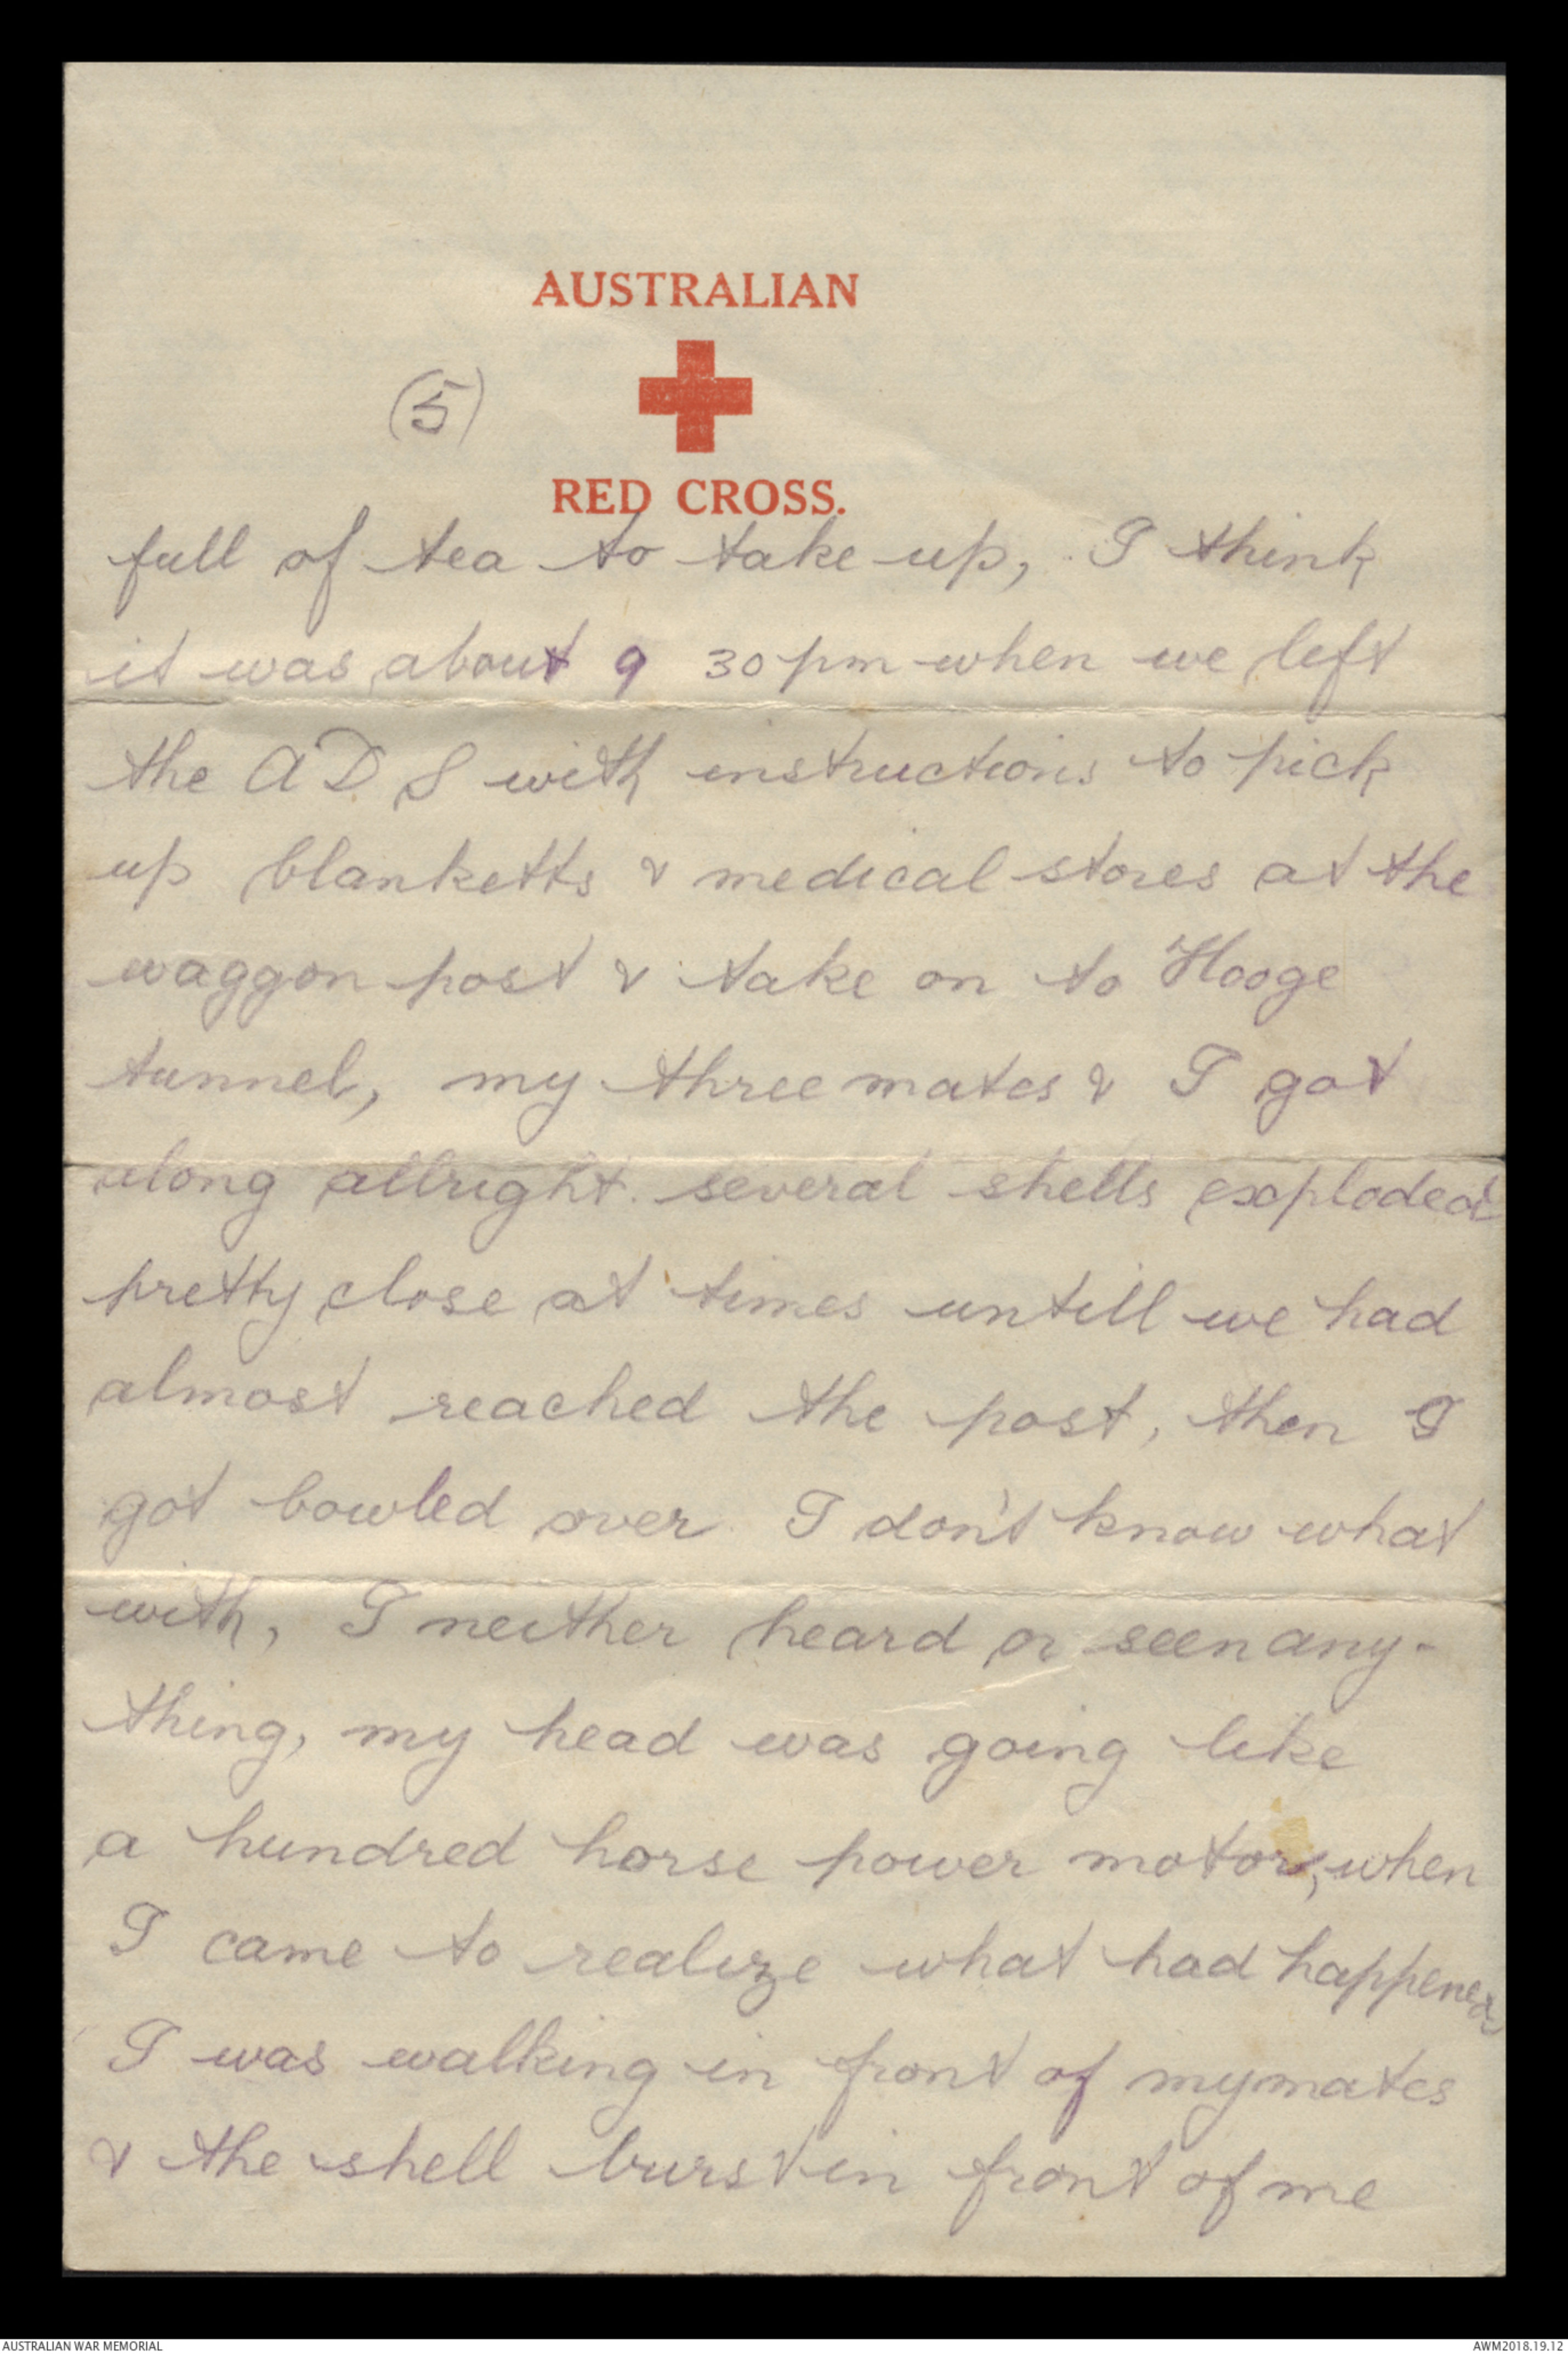 AUSTRALIAN
(5)
RED CROSS.
full of tea to take up, I think
it was about 9 30 pm when we left
the A D S with instructions to pick
up blanketts & medical stores at the
waggon post & take on to Hooge
tunnel, my three mates & I got
along allright. several shells exploded
pretty close at times untill we had
almost reached the post, then I
got bowled over I don't know what
with, I neither heard or seen any-
thing, my head was going like
a hundred horse power motor, when
I came to realize what had happened
I was walking in front of my mates
& the shell burst in front of me
AUSTRALIAN WAR MEMORIAL
AWM2018.19.12